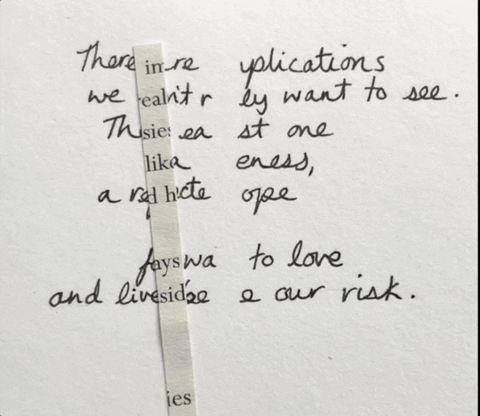 There im re yplications
we eal it r ely want to see.
Th sie ea st one
lika eness,
a d h cte ope
ays wa to love
and live side e our risk.
ies